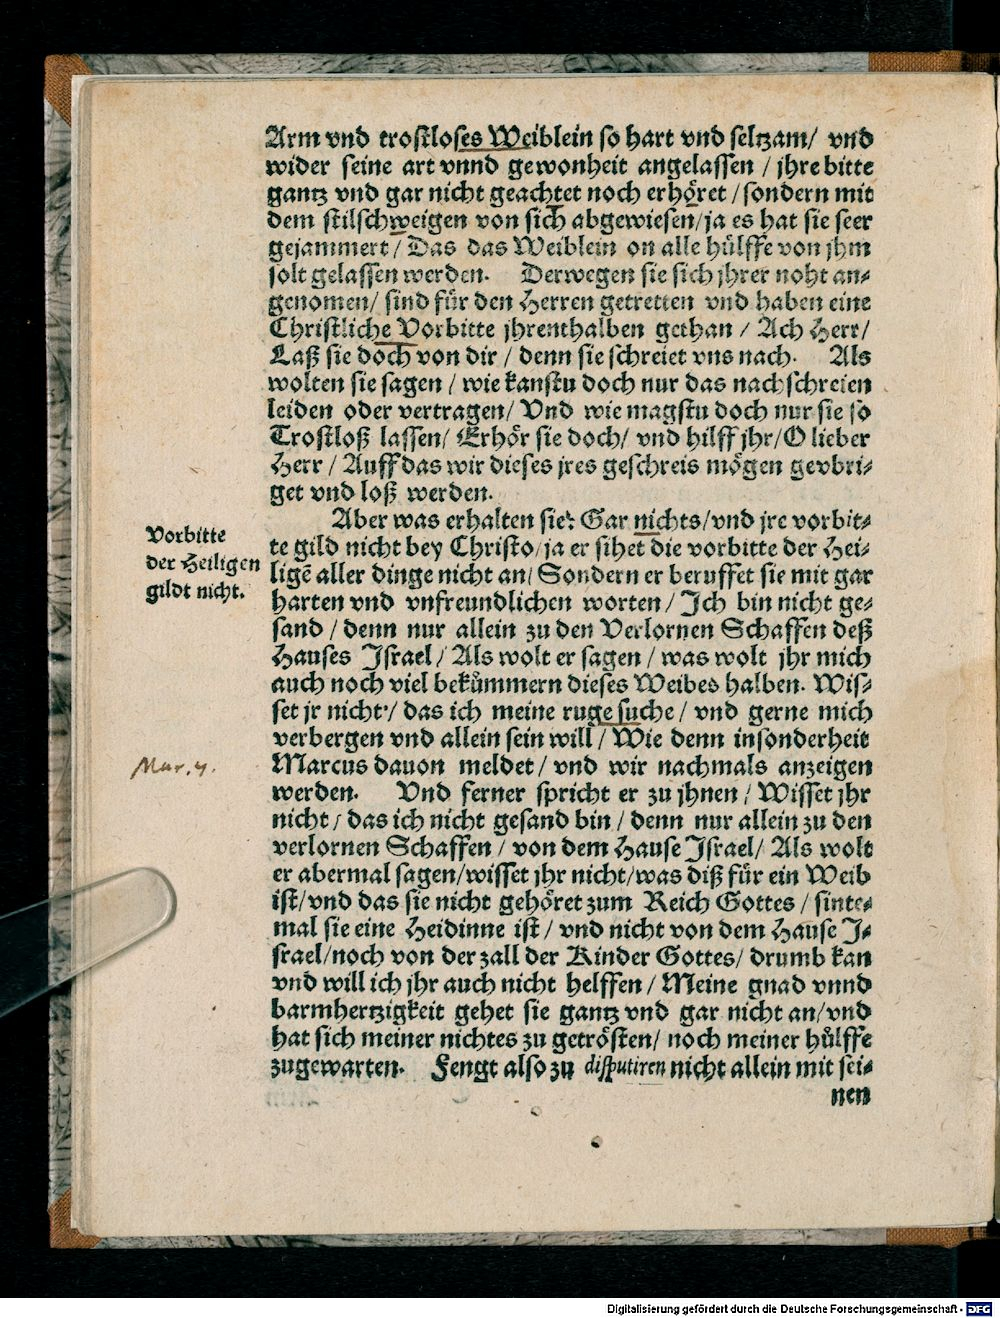 Arm vnd trostloses Weiblein so hart vnd seltzam/ vnd
wider seine art vnnd gewonheit angelassen / jhre bitte
gantz vnd gar nicht geachtet noch erhöret / sondern mit
dem stilschweigen von sich abgewiesen/ ja es hat sie seer
gejammert / Das das Weiblein on alle hülffe von jhm
solt gelassen werden. Derwegen sie sich jhrer noht an-
genomen/ sind für den Herren getretten vnd haben eine
Christliche Vorbitte jhrenthalben gethan / Ach Herr/
Laß sie doch von dir / denn sie schreiet vns nach. Als
wolten sie sagen / wie kanstu doch nur das nachschreien
leiden oder vertragen/ Vnd wie magstu doch nur sie so
Trostloß lassen/ Erhör sie doch/ vnd hilff jhr/ O lieber
Herr / Auff das wir dieses jres geschreis mögen gevbri-
get vnd loß werden.
Aber was erhalten sie? Gar nichts/ vnd jre vorbit-
te gild nicht bey Christo/ ja er sihet die vorbitte der Hei-
ligẽ aller dinge nicht an/ Sondern er beruffet sie mit gar
harten vnd vnfreundlichen worten / Ich bin nicht ge-
sand / denn nur allein zu den Verlornen Schaffen deß
Hauses Israel / Als wolt er sagen / was wolt jhr mich
auch noch viel bekümmern dieses Weibes halben. Wis-
set jr nicht / das ich meine ruge suche / vnd gerne mich
verbergen vnd allein sein will / Wie denn insonderheit
Marcus dauon meldet / vnd wir nachmals anzeigen
werden. Vnd ferner spricht er zu jhnen / Wisset jhr
nicht / das ich nicht gesand bin / denn nur allein zu den
verlornen Schaffen / von dem Hause Israel/ Als wolt
er abermal sagen/ wisset jhr nicht/ was diß für ein Weib
ist/ vnd das sie nicht gehöret zum Reich Gottes / sinte-
mal sie eine Heidinne ist / vnd nicht von dem Hause I-
srael/ noch von der zall der Kinder Gottes/ drumb kan
vnd will ich jhr auch nicht helffen / Meine gnad vnnd
barmhertzigkeit gehet sie gantz vnd gar nicht an/ vnd
hat sich meiner nichtes zu getrösten/ noch meiner hülffe
zugewarten. Fengt also zu disputiren nicht allein mit sei-
nen
Vorbitte
der Heiligen
gildt nicht.
Mar. 7.
Digitalisierung gefördert durch die Deutsche Forschungsgemeinschaft - DFG